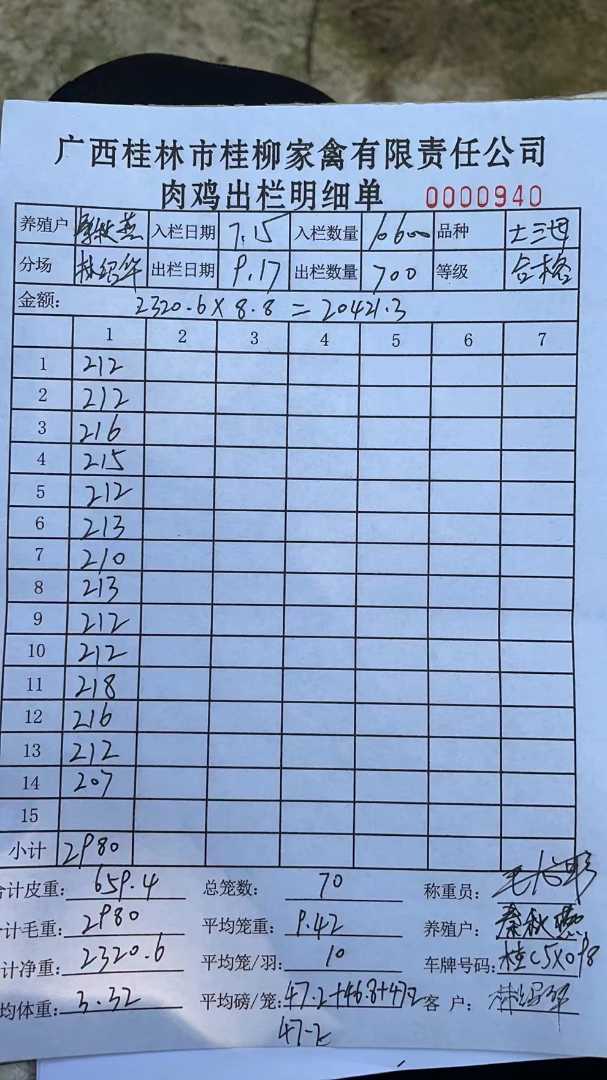 广西桂林市桂柳家禽有限责任公司
肉鸡出栏明细单 0000940
养殖户 秦秋燕 入栏日期 7.15 入栏数量 10600 品种 土三黄
分场 林绍华 出栏日期 9.17 出栏数量 700 等级 合格
金额: 2320.6×8.8=20421.3
1 2 3 4 5 6 7
1 212
2 212
3 216
4 215
5 212
6 213
7 210
8 213
9 212
10 212
11 218
12 216
13 212
14 207
15
小计 2980
合计皮重: 659.4 总笼数: 70 称重员:
计毛重: 2980 平均笼重: 9.42 养殖户: 秦秋燕
计净重: 2320.6 平均笼/羽: 10 车牌号码: 桂C5X098
均体重: 3.32 平均磅/笼: 47.2+46.8+47.2 客户: 林绍华
47.2